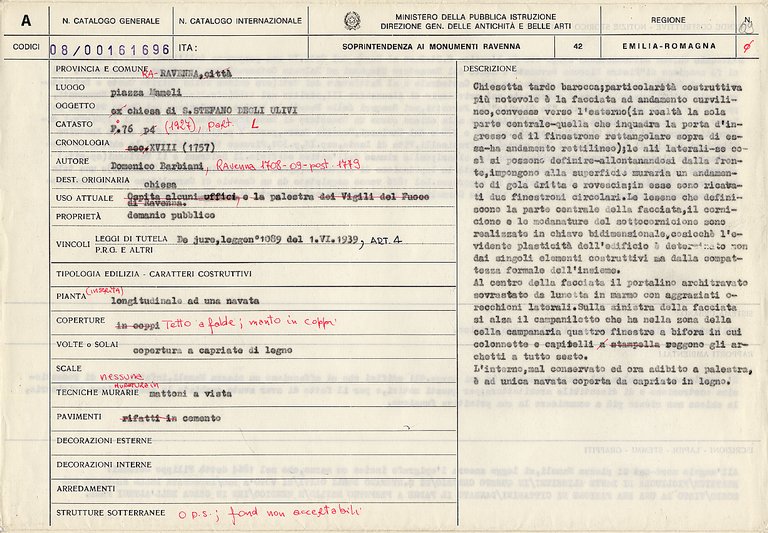 A
N. CATALOGO GENERALE
N. CATALOGO INTERNAZIONALE
MINISTERO DELLA PUBBLICA ISTRUZIONE
DIREZIONE GEN. DELLE ANTICHITÀ E BELLE ARTI
REGIONE
N.
CODICI
08/00161696
ITA:
SOPRINTENDENZA AI MONUMENTI RAVENNA
42
EMILIA-ROMAGNA
PROVINCIA E COMUNE RA-RAVENNA, città
LUOGO piazza Mameli
OGGETTO ex chiesa di S.STEFANO DEGLI ULIVI
CATASTO F.76 p4 (1927), part. L
CRONOLOGIA sec.XVIII (1757)
AUTORE Domenico Barbiani, Ravenna 1708-09-post.1779
DEST. ORIGINARIA chiesa
USO ATTUALE Ospita alcuni uffici e la palestra dei Vigili del Fuoco
di Ravenna.
PROPRIETÀ demanio pubblico
VINCOLI LEGGI DI TUTELA De jure, legge n°1089 del 1.VI.1939, ART. 4
P.R.G. E ALTRI
TIPOLOGIA EDILIZIA - CARATTERI COSTRUTTIVI
PIANTA (inserita) longitudinale ad una navata
COPERTURE in coppi Tetto a falde; manto in coppi
VOLTE o SOLAI copertura a capriate di legno
SCALE nessuna
TECNICHE MURARIE muratura in mattoni a vista
PAVIMENTI rifatti in cemento
DECORAZIONI ESTERNE
DECORAZIONI INTERNE
ARREDAMENTI
STRUTTURE SOTTERRANEE o p.s.; fond non accertabili
DESCRIZIONE
Chiesetta tardo barocca; particolarità costruttiva
più notevole è la facciata ad andamento curvili-
neo, convesse verso l'esterno (in realtà la sola
parte centrale-quella che inquadra la porta d'in-
gresso ed il finestrone rettangolare sopra di es-
sa-ha andamento rettilineo); le ali laterali-se co-
sì si possono definire-allontanandosi dalla fron-
te, impongono alla superficie muraria un andamen-
to di gola dritta e rovescia; in esse sono ricava-
ti due finestroni circolari. Le lesene che defini-
scono la parte centrale della facciata, il corni-
cione e le modanature del sottocornicione sono
realizzate in chiave bidimensionale, cosicchè l'e-
vidente plasticità dell'edificio è determinato non
dai singoli elementi costruttivi ma dalla compat-
tezza formale dell'insieme.
Al centro della facciata il portalino architravato
sovrastato da lunetta in marmo con aggraziati o-
recchioni laterali. Sulla sinistra della facciata
si alza il campaniletto che ha nella zona della
cella campanaria quattro finestre a bifora in cui
colonnette e capitelli a stampella reggono gli ar-
chetti a tutto sesto.
L'interno, mal conservato ed ora adibito a palestra,
è ad unica navata coperta da capriate in legno.